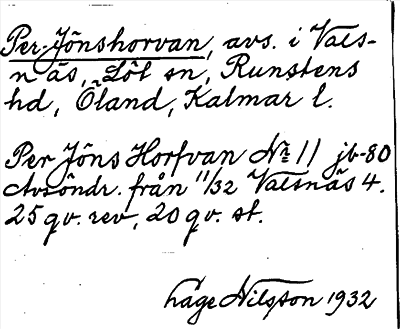 Per-Jönshorvan, avs. i Vals-
näs, Löt sn, Runstens
hd, Öland, Kalmar l.
Per Jöns Horfvan Nr 11 jb-80
Avsöndr. från 11/32 Valsnäs 4.
25 qv. rev, 20 qv. st.
Åage Nilsson 1932